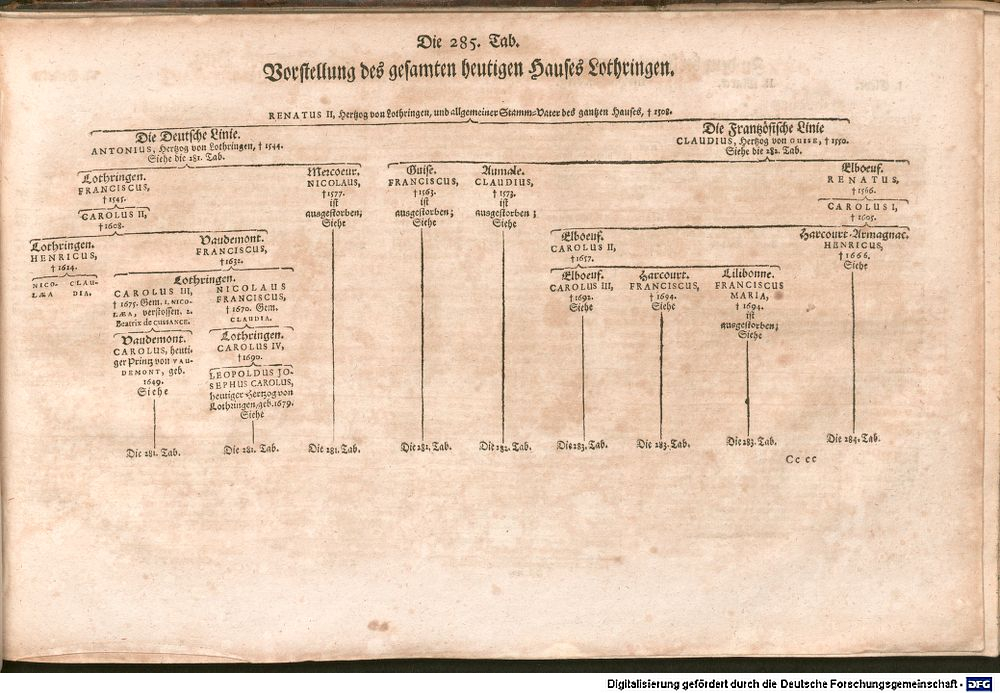 Die 285. Tab.
Vorstellung des gesamten heutigen Hauses Lothringen.
RENATUS II, Hertzog von Lothringen, und allgemeiner Stamm-Vater des gantzen Hauses, † 1508.
Die Deutsche Linie.
ANTONIUS, Hertzog von Lothringen, † 1544.
Siehe die 281. Tab.
Die Frantzösische Linie
CLAUDIUS, Hertzog von GUISE, † 1550.
Siehe die 282. Tab.
Lothringen.
FRANCISCUS,
† 1545.
CAROLUS II,
† 1608.
Mercoeur.
NICOLAUS,
† 1577.
ist
ausgestorben;
Siehe
Guise.
FRANCISCUS,
† 1563.
ist
ausgestorben;
Siehe
Aumale.
CLAUDIUS,
† 1573.
ist
ausgestorben;
Siehe
Elboeuf.
RENATUS,
† 1566.
CAROLUS I,
† 1605.
Lothringen.
HENRICUS,
† 1624.
NICO- CLAU-
LÆA DIA.
Vaudemont.
FRANCISCUS,
† 1632.
Lothringen.
CAROLUS III,
† 1675. Gem. 1. NICO-
LÆA, verstossen. 2.
Beatrix de CUISANCE.
Vaudemont.
CAROLUS, heuti-
ger Printz von VAU-
DEMONT, geb.
1649.
Siehe
NICOLAUS
FRANCISCUS,
† 1670. Gem.
CLAUDIA.
Lothringen.
CAROLUS IV,
† 1690.
LEOPOLDUS JO-
SEPHUS CAROLUS,
heutiger Hertzog von
Lothringen, geb. 1679.
Siehe
Elboeuf.
CAROLUS II,
† 1657.
Harcourt-Armagnac.
HENRICUS,
† 1666.
Siehe
Elboeuf.
CAROLUS III,
† 1692.
Siehe
Harcourt.
FRANCISCUS,
† 1694.
Siehe
Lilibonne.
FRANCISCUS
MARIA,
† 1694.
ist
ausgestorben;
Siehe
Die 281. Tab.
Die 281. Tab.
Die 281. Tab.
Die 282. Tab.
Die 282. Tab.
Die 283. Tab.
Die 283. Tab.
Die 283. Tab.
Die 284. Tab.
Cc cc
Digitalisierung gefördert durch die Deutsche Forschungsgemeinschaft - DFG